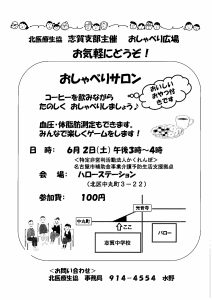 北医療生協 志賀支部主催 おしゃべり広場
お気軽にどうぞ！
おしゃべりサロン
コーヒーを飲みながら
たのしく おしゃべりしましょう♪
おいしい
おやつ付
きです
血圧・体脂肪測定もできます。
みんなで楽しくゲームをします！
日 時： 6月2日(土)午後3時～4時
<特定非営利活動法人かくれんぼ>
名古屋市補助金事業介護予防生活支援拠点
会 場： ハローステーション
（北区中丸町3－22）
参加費： 100円
光音寺
中丸町
ここ
志賀中学校
バロー
<お問い合わせ>
北医療生協 事務局 914－4554 水野